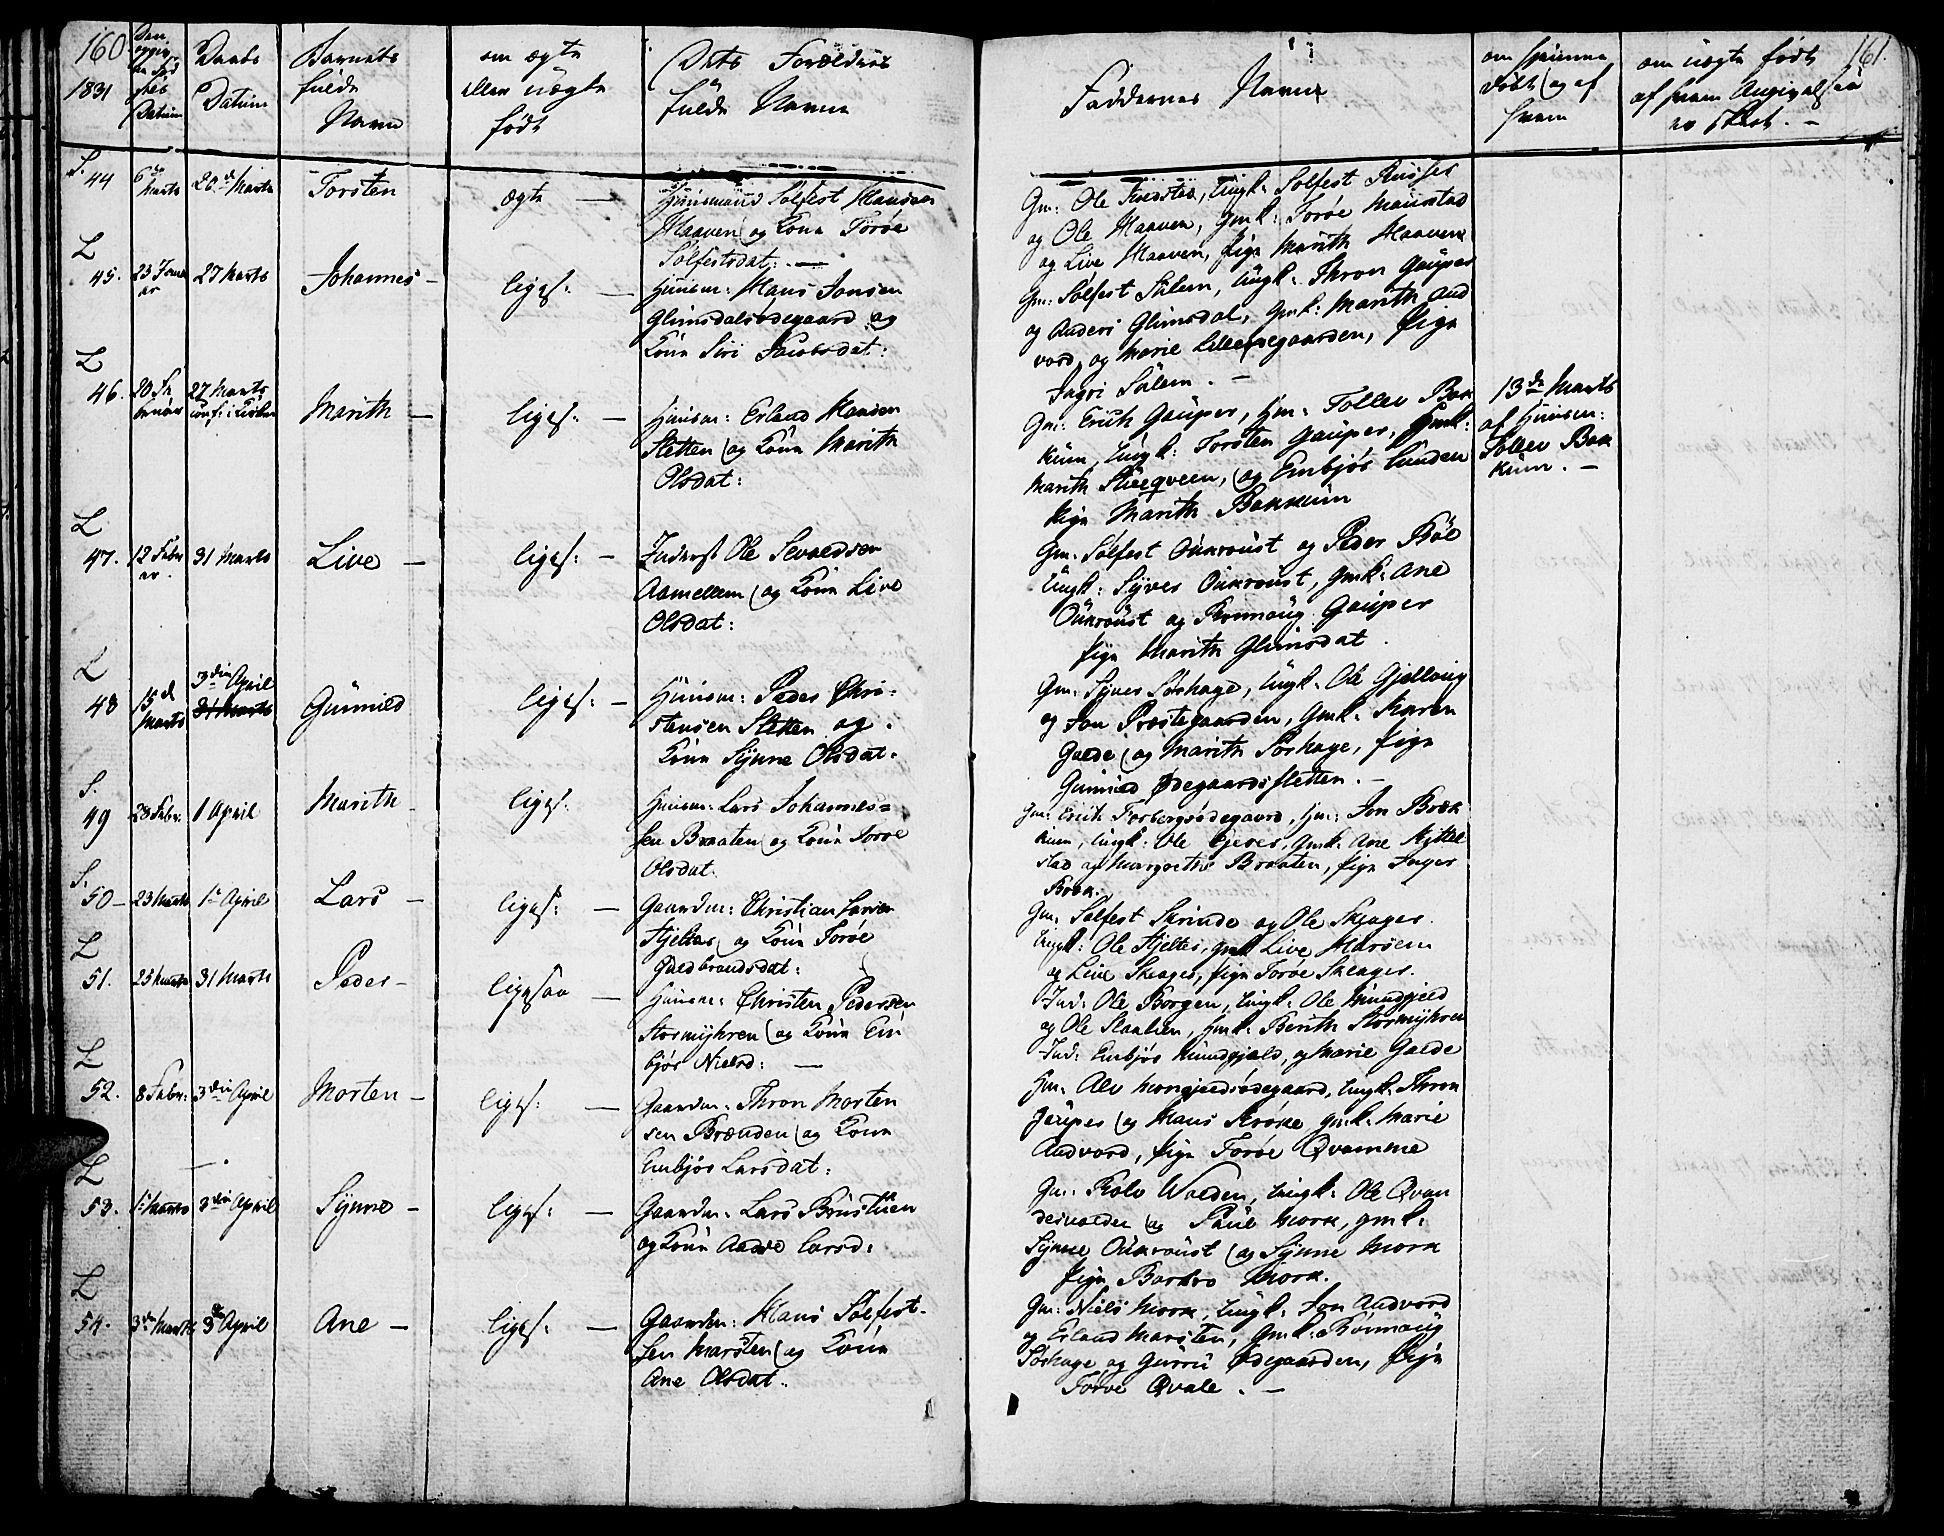 160
1831
Daabs
Datum
Barnets
fulde
Navn
om ægte
eller uægte
født
Dets Forældres
fulde Navne
Faddernes Navne
om hjemme
døbt og af
hvem
161.
om uægte født
af hvem Angivelsen
er skeet. -
S.
44
6te Marts
20de Marts
Torsten
ægte
Huusmand Solfest Hansen
Haaven og Kone Toröe
Solfestsdat:
Gm: Ole , Ungk: Solfest
og Ole Haaven, Gmk: Toröe
og Live Haaven, Pige Marith Haaven
L
45.
27 Marts
Johannes -
ligesl:
Huusm: Hans Jonsen
Glimsdalsödegaard og
Kone Siri Jacobsdat:
Gm: Solfest Sulem, Ungk: Thron Gauper
og Anders Glimsdal, Gmk: Marith And
vord, og Marie , Pige
Ingri Sulem. -
L
46.
20 Fe
bruar
27 Marts
conf: i Kirken
Marith -
ligesl: -
Huusm: Erland Hansen
Sletten og Kone Marith
Olsdat:
Gm: Erich Gauper, Hm: Tollev Bak
kum, Ungk: Torsten Gauper, Gmk:
Marith , og Embjör Lunden
Pige Marith Bakkum
13de Marts
af Huusm:
Tollev Bak
kum. -
L
47.
12 Febr
ar.
31 Marts
Live -
ligesl: -
Inderst Ole Sevaldsen
Aamellem og Kone Live
Olsdat:
Gm: Solfest Oukroust og Peder Böe
Ungk: Syver Oukroust, Gmk: Ane
Oukroust og Ronnoug Gauper
Pige Marith Glimsdal.
L
48
15de
Marts
3die April
31 Marts
Gunnild
ligesl: -
Huusm: Peder Chri-
stensen Sletten og
Kone Synne Olsdat:
Gm: Syver Sörhage, Ungk: Ole Gjelloug
og Jon Præstegaarden, Gmk: Karen
Galde og Marith Sörhage, Pige
Gunnild Ödegaardssletten. -
S.
49
28 Febr:
1 April
Marith
ligesl:
Huusm: Lars Johannes=
sen Braaten og Kone Toröe
Olsdat.
Gm: Erich Forbergsödegaard, Hm: Jon Bræk
kum, Ungk: Ole , Gmk: Ane
stad og Margrethe Braaten, Pige Inger
Bræk.
S.
50 -
23 Marts
1te April
Lars -
ligesl: -
Gaardm: Christian Larsen
Hjeltar og Kone Toröe
Guldbrandsdat:
Gm: Solfest Skrinde og Ole Skjager.
Ungk: Ole Hjeltar, Gmk Live Marsem
og Live Skeager, Pige Toröe Skeager.
L
51.
25 Marts
31 Marts
Peder -
ligesaa -
Huusm: Christen Pedersen
Stormyhren og Kone Em
björ Nielsd: -
Ind: Ole Borgen, Ungk: Ole Mundgjeld
og Ole Staalien, Hmk: Berith Stormyhren
Ind: Embjör Mundgjeld, og Marie Galde
L
52.
8 Febr:
3die April
Morten -
ligesl: -
Gaardm: Thron Morten
sen Brænden og Kone
Embjör Larsdat:
Hm: Alv Mongjeldsödegaard, Ungk: Thron
Gauper og Hans Kröke Gmk: Marie
Andvord, Pige Toröe Qvamme
L
53.
1te Marts
3die April
Synne -
ligesl: -
Gaardm: Lars Brustuen
og Kone Larsd:
Gm: Rolv Volden, Ungk: Ole Qvan
dersvolden og Paul Mork, Gmk:
Synne Oukroust og Synne Mork
Pige Barbro Mork.
L
54.
3de Marts
3die April
Ane -
ligesl: -
Gaardm: Hans Solfest-
sen Marstein og Kone
Ane Olsdat.
Gm: Niels Mork, Ungk: Jon Andvord
og Erland Marstein, Gmk: Rönnoug
Sörhage og Gurru Ödegaarden, Pige
Toröe Qvale. -